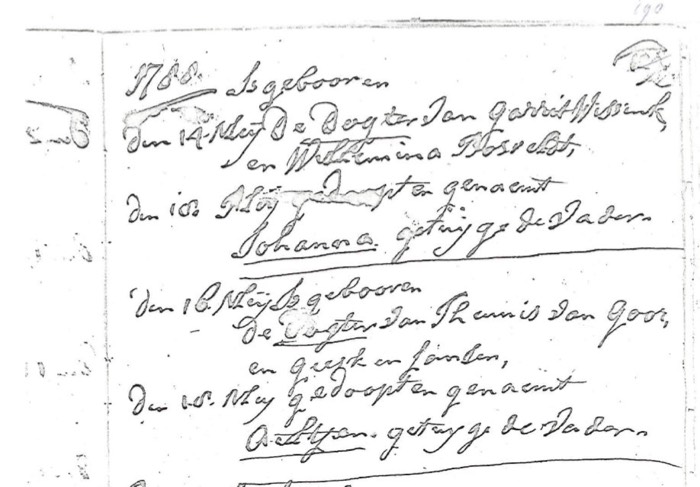 190
1788. Is gebooren
den 14 Meij De Dogter van Garrit Wissink,
en Willemina Bosveldt,
den 18. Meij gedoopt en genaemt
Johanna. getuijge de Vader.
den 16 Meij Is gebooren
de Dogter van Theunis van Goor,
en Geesken Jansen,
Den 18. Meij gedoopt en genaemt
Aeltjen. getuijge de Vader.